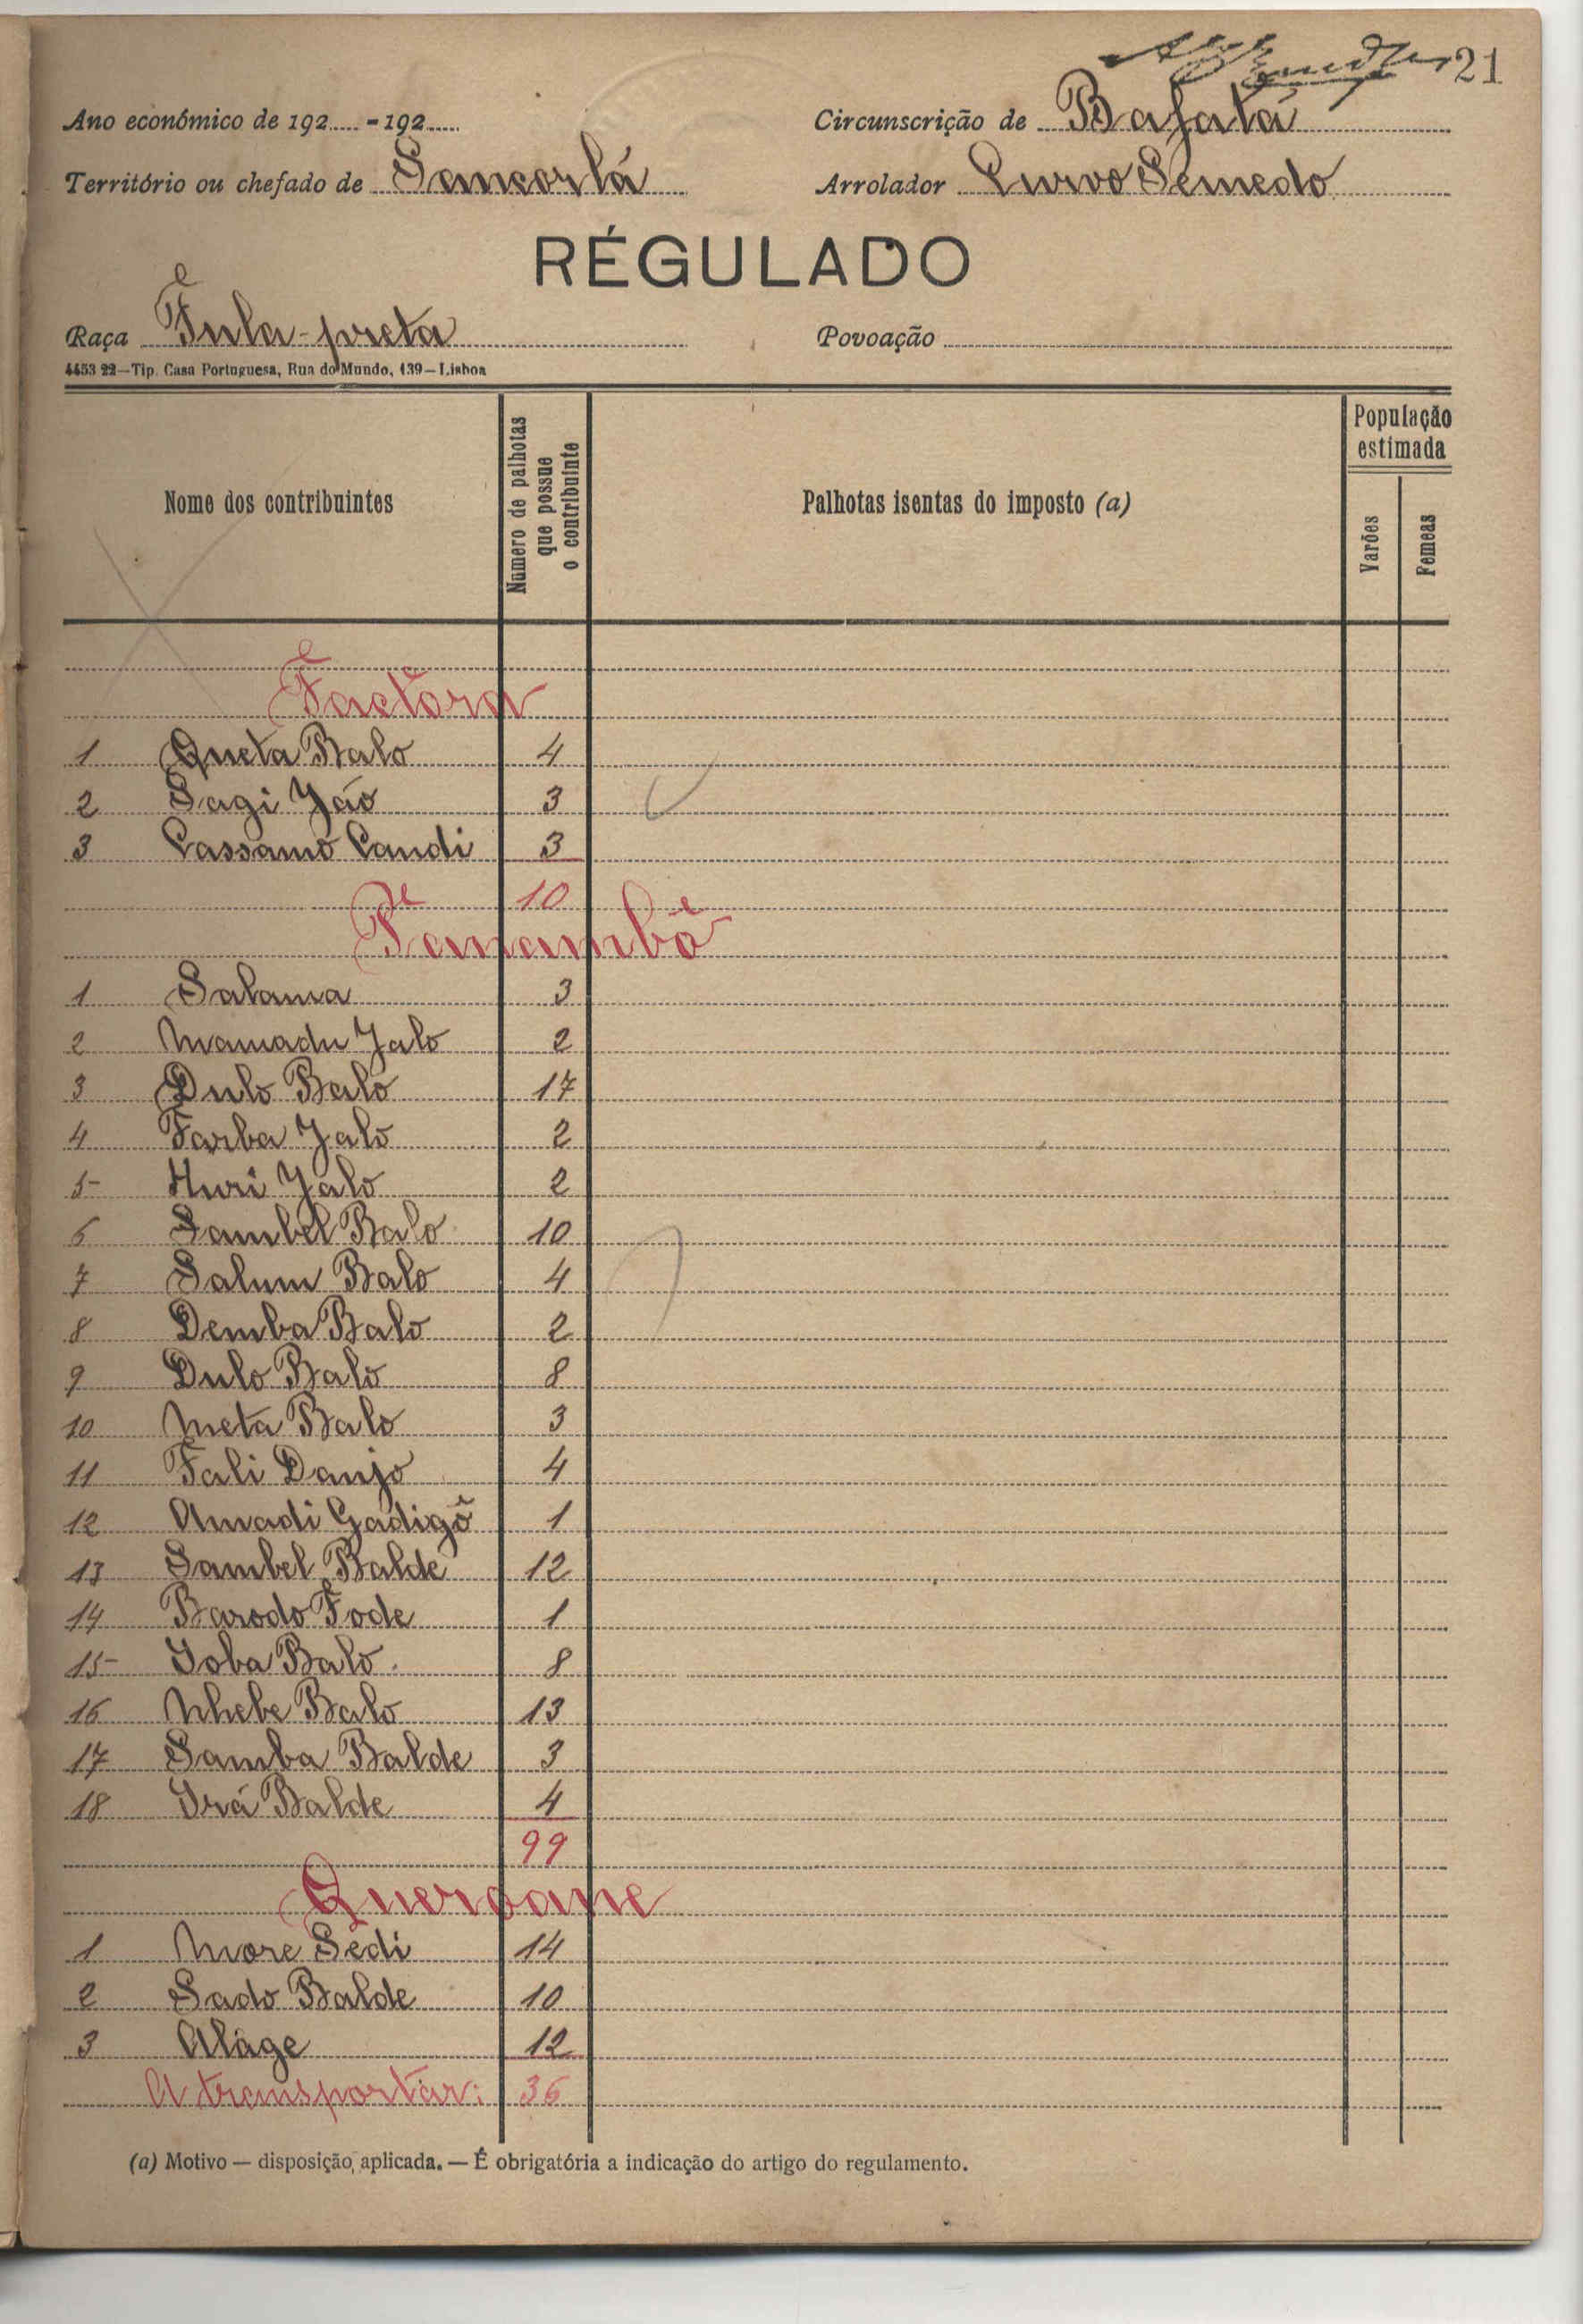 21
Ano económico de 192..... - 192.....
Circunscrição de Bafatá
Território ou chefado de Sancorlá
Arrolador Curvo Semedo
RÉGULADO
Raça Fula-preta
Povoação
4453 22—Tip. Casa Portuguesa, Rua do Mundo, 139—Lisboa
Nome dos contribuintes
Número de palhotas que possue o contribuinte
Palhotas isentas do imposto (a)
População estimada
Varões
Femeas
Factora
1 Queta Balo 4
2 Sagi Jáo 3
3 Cassamo Candi 3
10
Panambô
1 Salama 3
2 Mamadu Jalo 2
3 Dulo Balo 17
4 Farba Jalo 2
5 Huri Jalo 2
6 Sambel Balo 10
7 Salum Balo 4
8 Demba Balo 2
9 Dulo Balo 8
10 Meta Balo 3
11 Fali Danjo 4
12 Amadi Gadigô 1
13 Sambel Balde 12
14 Barodo Fode 1
15 Joba Balo 8
16 Nhebe Balo 13
17 Samba Balde 3
18 Irá Balde 4
99
Queroane
1 More Sedi 14
2 Sado Balde 10
3 Aláge 12
A transportar: 36
(a) Motivo — disposição aplicada. — É obrigatória a indicação do artigo do regulamento.